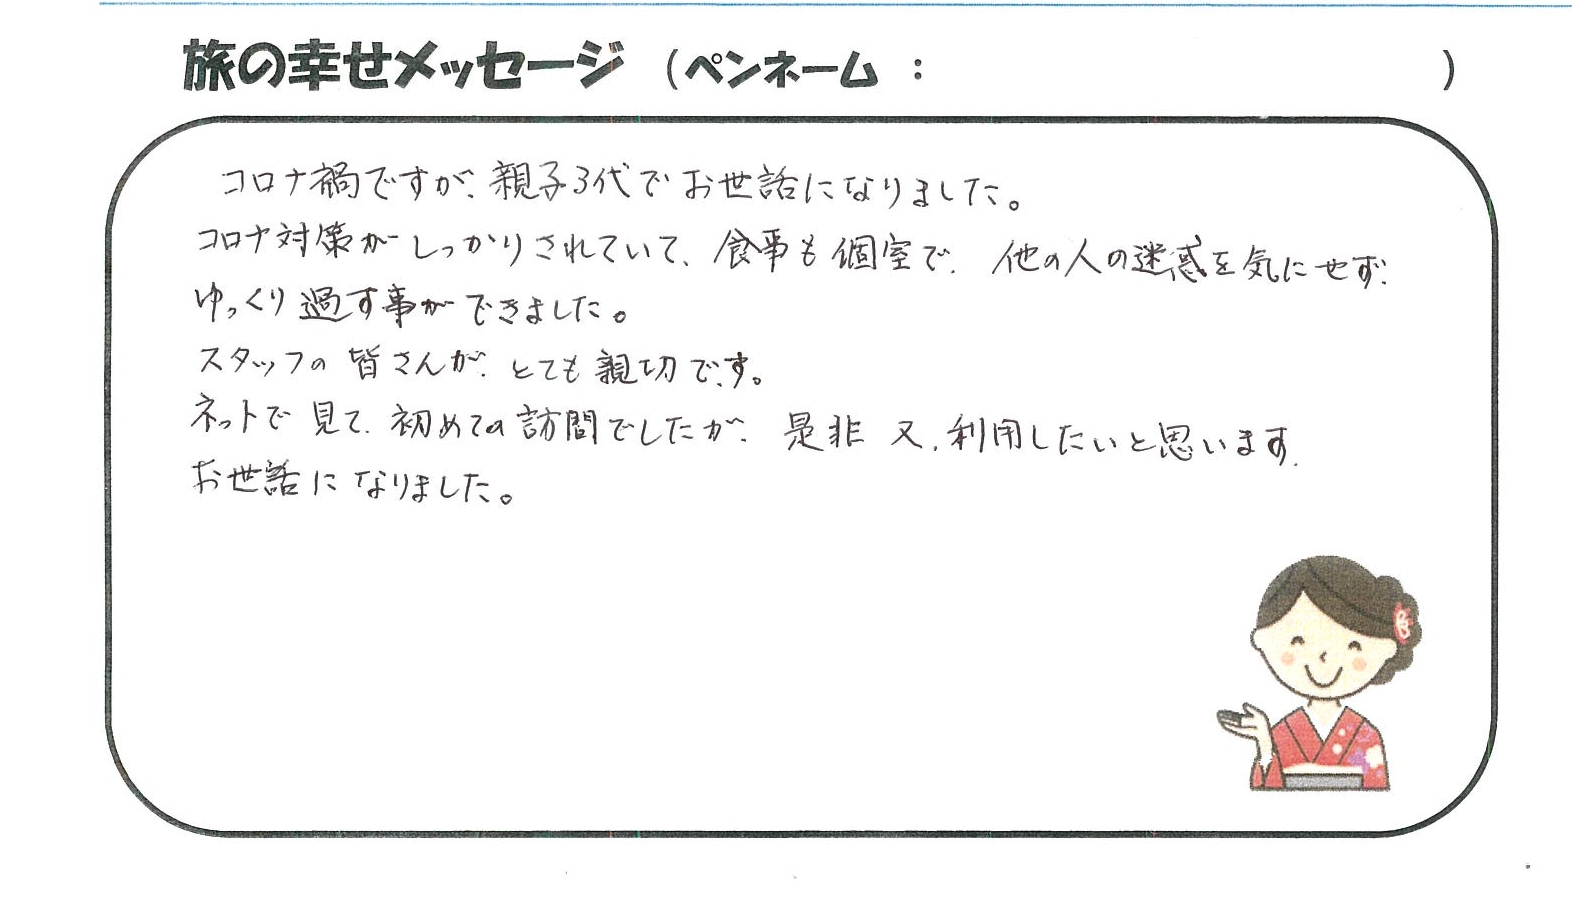 旅の幸せメッセージ （ペンネーム ： ）
コロナ禍ですが、親子3代でお世話になりました。
コロナ対策がしっかりされていて、食事も個室で、他の人の迷惑を気にせず、
ゆっくり過す事ができました。
スタッフの皆さんが、とても親切です。
ネットで見て、初めての訪問でしたが、是非 又、利用したいと思います。
お世話になりました。